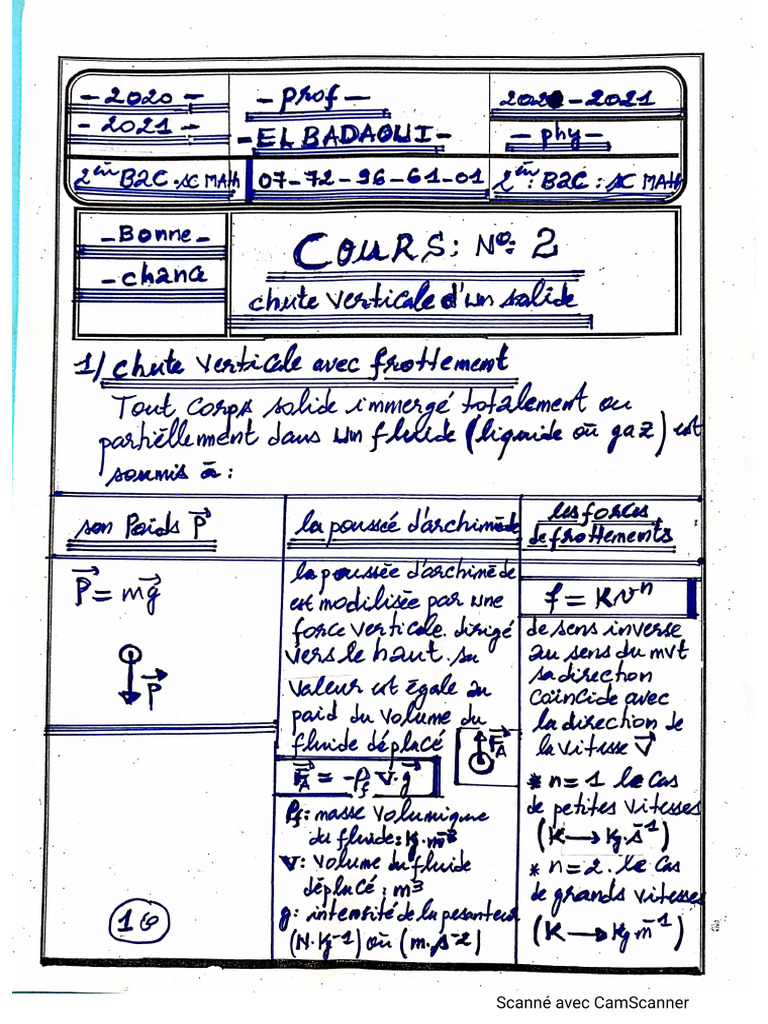 - 2020 -
- 2021 -
- prof -
- EL BADAOUI -
2020 - 2021
- phy -
2èm B2C.SC MATH
07-72-96-61-01
2èm: B2C: SC MATH
- Bonne -
- chance
COURS: N°: 2
chute verticale d'un solide
1/ chute verticale avec frottement
Tout corps solide immergé totalement ou
partiéllemment dans un fluide (liquide où gaz) est
soumis à:
son Poids P⃗
P⃗ = mg⃗
P⃗
la poussée d'archimède
la poussée d'archimède
est modilisée par une
force verticale. dirigé
vers le haut. sa
valeur est égale au
paid du volume du
fluide déplacé
F⃗A
F⃗A = -ρf V.g⃗
ρf: masse volumique
du fluide: Kg.m⁻³
V: volume du fluide
déplacé: m³
g: intensité de la pesanteur
(N.Kg⁻¹) où (m.s⁻²)
les forces
de frottements
f = Kvⁿ
de sens inverse
au sens du mvt
sa direction
coïncide avec
la direction de
la vitesse V⃗
* n=1 le cas
de petites vitesses
(K → Kg.s⁻¹)
* n=2. le cas
de grands vitesses
(K → Kg m⁻¹)
Scanné avec CamScanner